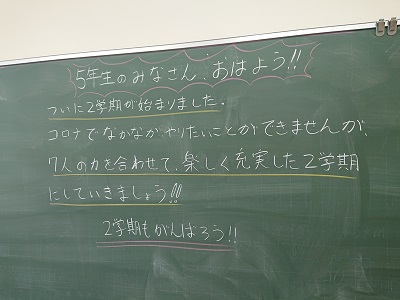 5年生のみなさん、おはよう!!
ついに2学期が始まりました。
コロナでなかなかやりたいことができませんが、
7人の力を合わせて、楽しく充実した2学期
にしていきましょう!!
2学期もがんばろう!!